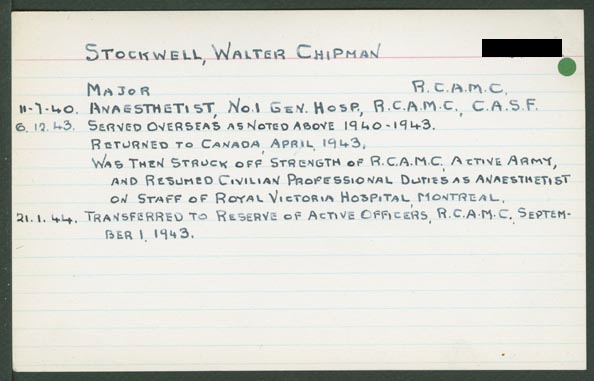 STOCKWELL, WALTER CHIPMAN
MAJOR R.C.A.M.C.
11-7-40. ANAESTHETIST, NO.1 GEN. HOSP., R.C.A.M.C., C.A.S.F.
6.12.43. SERVED OVERSEAS AS NOTED ABOVE 1940-1943.
RETURNED TO CANADA, APRIL, 1943.
WAS THEN STRUCK OFF STRENGTH OF R.C.A.M.C., ACTIVE ARMY,
AND RESUMED CIVILIAN PROFESSIONAL DUTIES AS ANAESTHETIST
ON STAFF OF ROYAL VICTORIA HOSPITAL, MONTREAL.
21.1.44. TRANSFERRED TO RESERVE OF ACTIVE OFFICERS, R.C.A.M.C., SEPTEM-
BER 1, 1943.